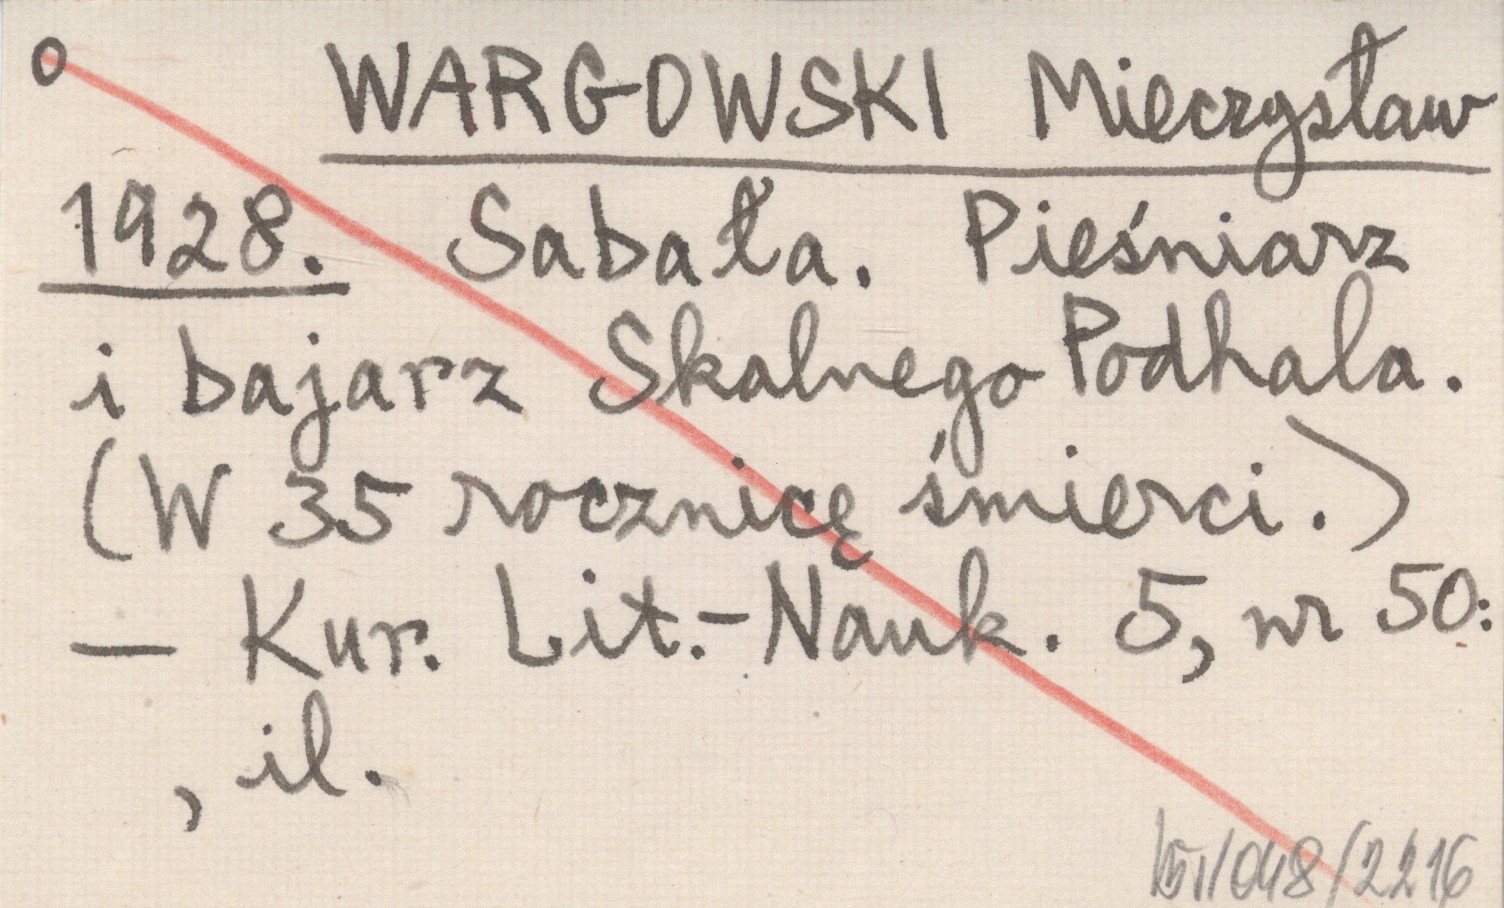 o WARGOWSKI Mieczysław
1928. Sabała. Pieśniarz
i bajarz Skalnego Podhala.
(W 35 rocznicę śmierci.)
— Kur. Lit.-Nauk. 5, nr 50:
, il.
/048/2216